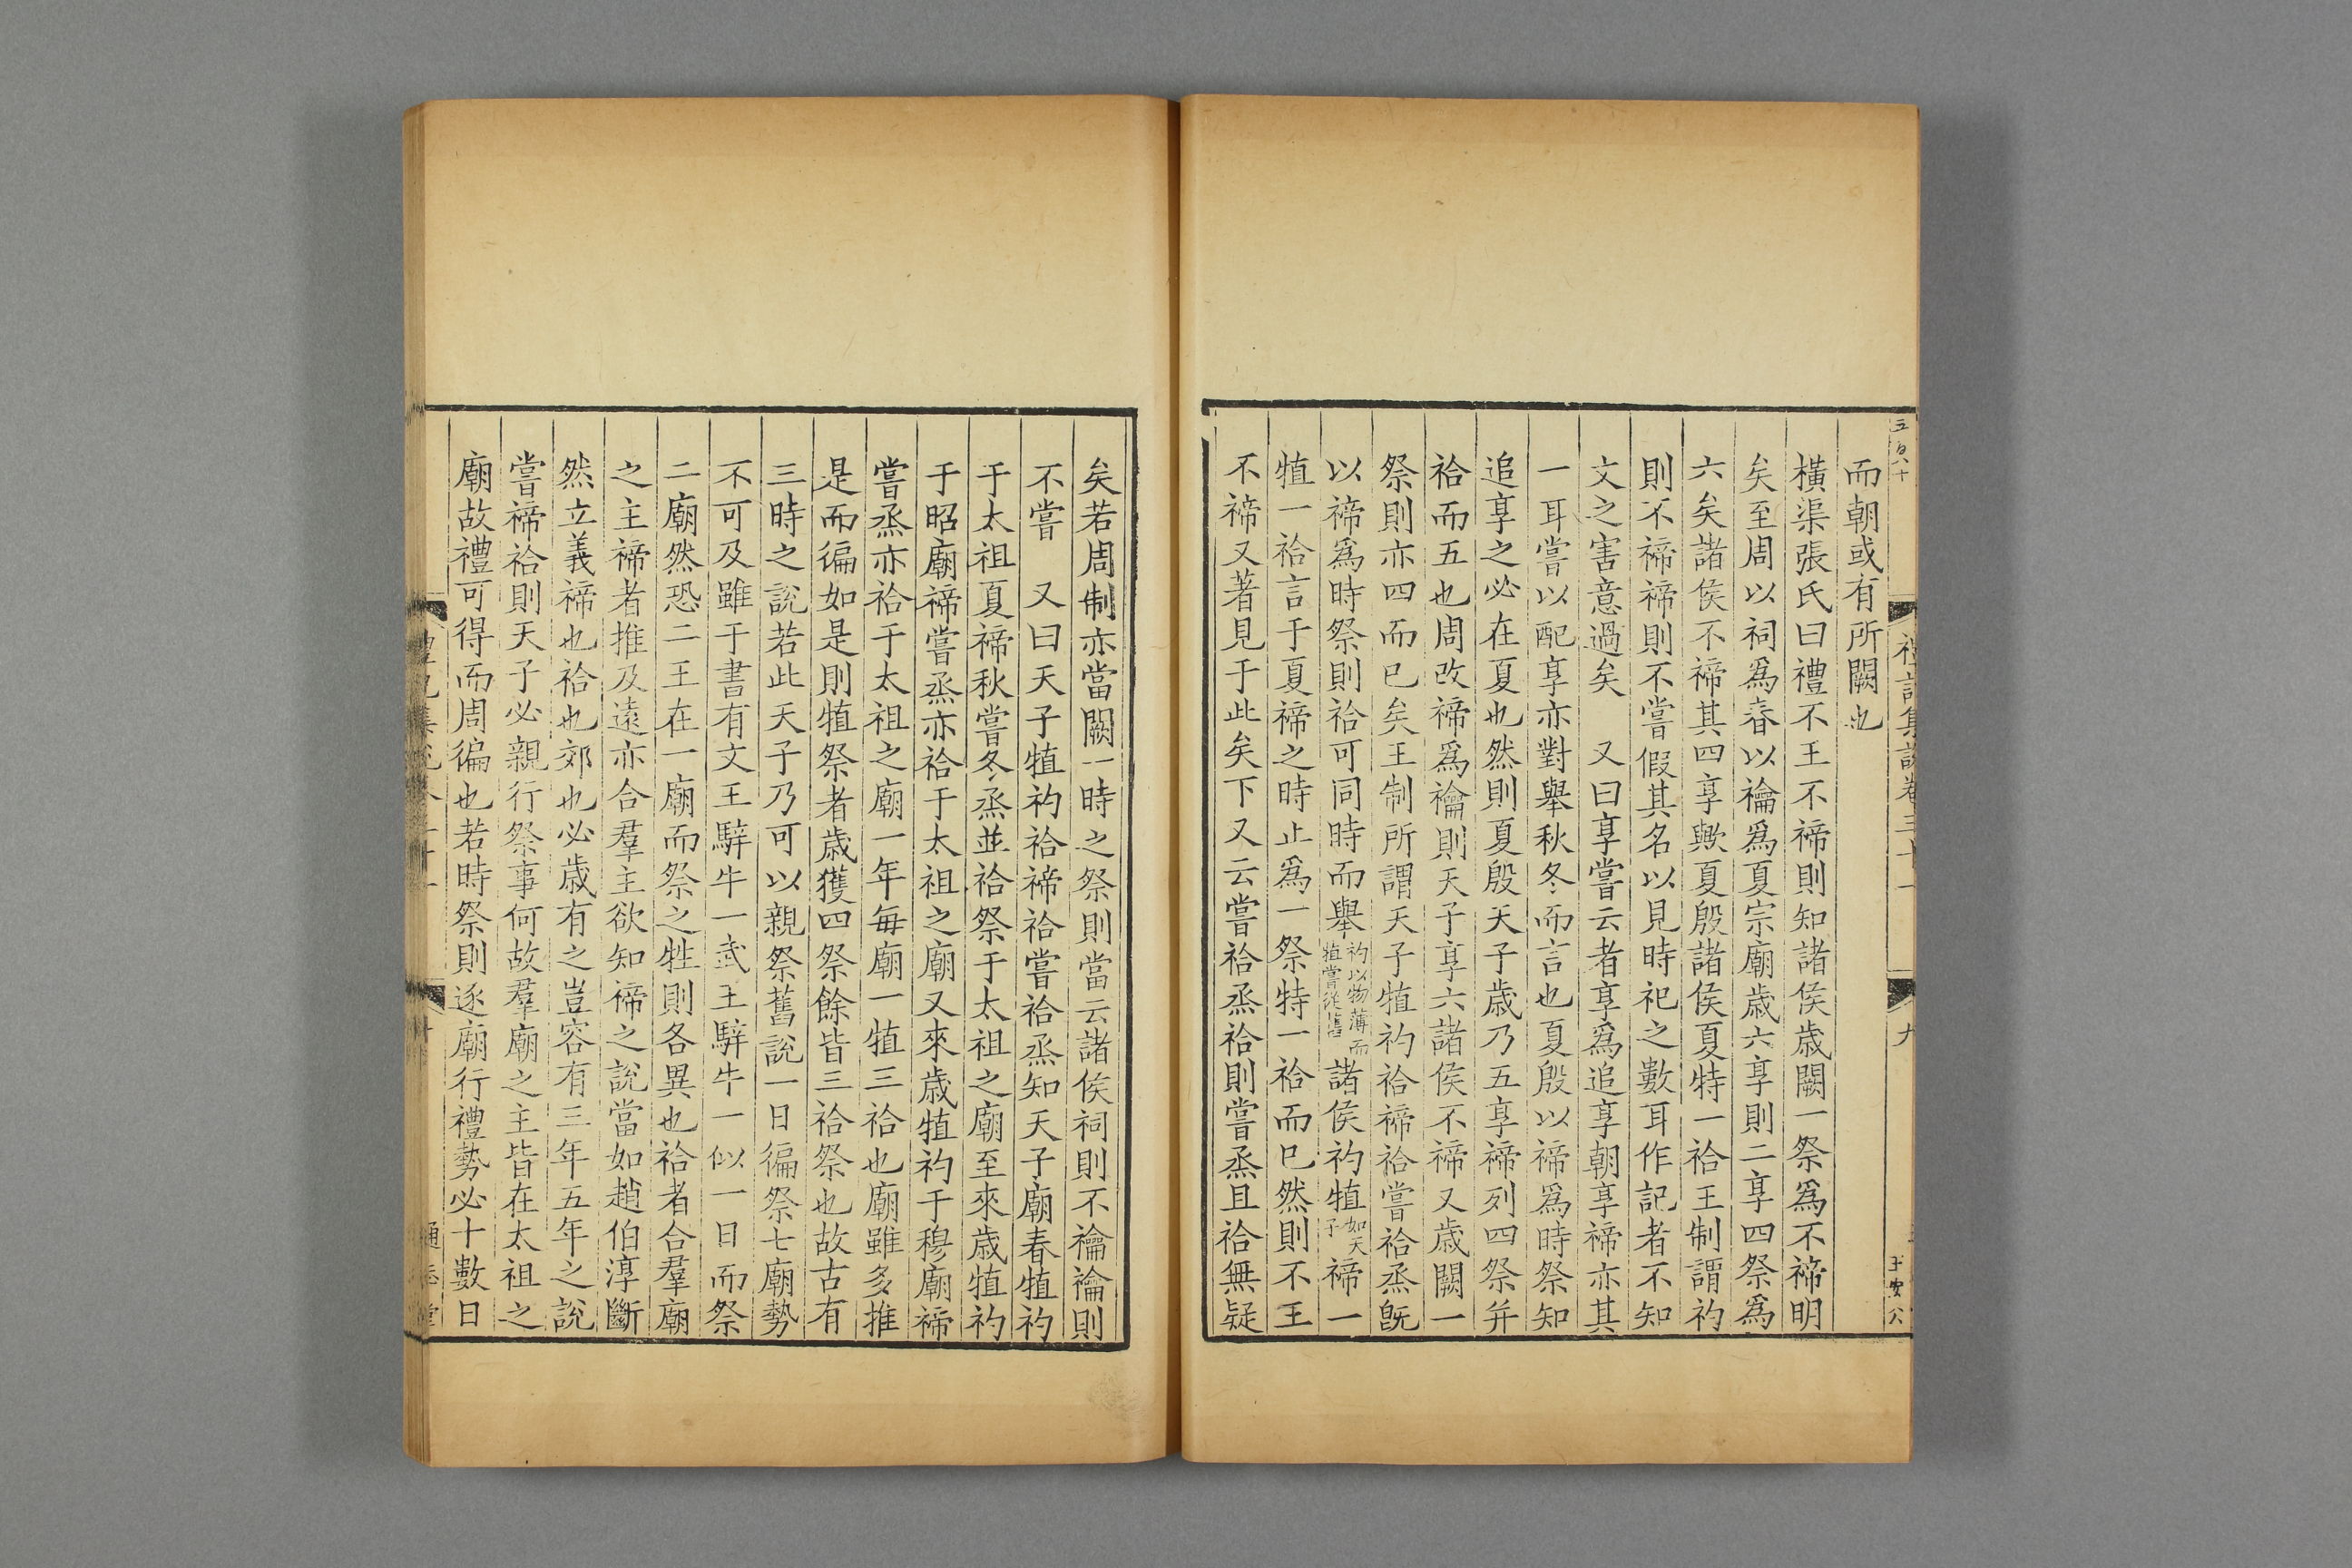 禮記集說卷三十一
九
而朝或有所闕也
橫渠張氏曰禮不王不禘則知諸侯歲闕一祭爲不禘明
矣至周以祠爲春以禴爲夏宗廟歲六享則二享四祭爲
六矣諸侯不禘其四享歟夏殷諸侯夏特一祫王制謂礿
則不禘禘則不嘗假其名以見時祀之數耳作記者不知
文之害意過矣　又曰享嘗云者享爲追享朝享禘亦其
一耳嘗以配享亦對舉秋冬而言也夏殷以禘爲時祭知
追享之必在夏也然則夏殷天子歲乃五享禘列四祭并
祫而五也周改禘爲禴則天子享六諸侯不禘又歲闕一
祭則亦四而已矣王制所謂天子犆礿祫禘祫嘗祫烝旣
以禘爲時祭則祫可同時而舉礿以物薄而犆嘗從舊諸侯礿犆如天子禘一
犆一祫言于夏禘之時止爲一祭特一祫而已然則不王
不禘又著見于此矣下又云嘗祫烝祫則嘗烝且祫無疑
矣若周制亦當闕一時之祭則當云諸侯祠則不禴禴則
不嘗　又曰天子犆礿祫禘祫嘗祫烝知天子廟春犆礿
于太祖夏禘秋嘗冬烝並祫祭于太祖之廟至來歲犆礿
于昭廟禘嘗烝亦祫于太祖之廟又來歲犆礿于穆廟禘
嘗烝亦祫于太祖之廟一年每廟一犆三祫也廟雖多推
是而徧如是則犆祭者歲獲四祭餘皆三祫祭也故古有
三時之說若此天子乃可以親祭舊說一日徧祭七廟勢
不可及雖于書有文王騂牛一武王騂牛一似一日而祭
二廟然恐二王在一廟而祭之牲則各異也祫者合羣廟
之主禘者推及遠亦合羣主欲知禘之說當如趙伯淳斷
然立義禘也祫也郊也必歲有之豈容有三年五年之說
嘗禘祫則天子必親行祭事何故羣廟之主皆在太祖之
廟故禮可得而周徧也若時祭則逐廟行禮勢必十數日
十
通志堂